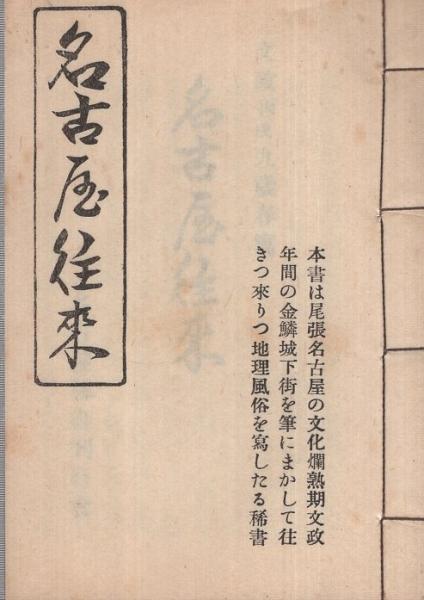 名古屋往來
本書は尾張名古屋の文化爛熟期文政
年間の金鱗城下街を筆にまかして往
きつ來りつ地理風俗を寫したる稀書